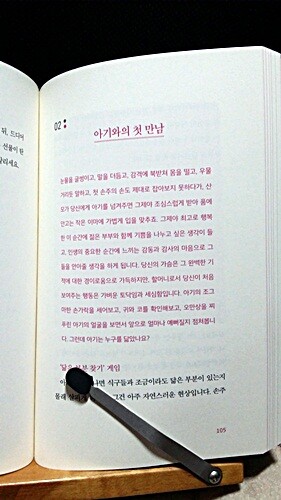 뒤, 드디어
선물이 된
달리세요.
02
아기와의 첫 만남
눈물을 글썽이고, 말을 더듬고, 감격에 북받쳐 몸을 떨고, 우물
거리듯 말하고, 첫 손주의 손도 제대로 잡아보지 못하다가, 산
모가 당신에게 아기를 넘겨주면 그제야 조심스럽게 받아 품에
안고는 작은 이마에 가볍게 입을 맞추죠. 그제야 최고로 행복
한 이 순간에 젊은 부부와 함께 기쁨을 나누고 싶은 생각이 들
고, 인생의 중요한 순간에 느끼는 감동과 감사의 마음으로 그
들을 안아줄 생각을 하게 됩니다. 당신의 가슴은 그 완벽한 기
적에 대한 경이로움으로 가득하지만, 할머니로서 당신이 처음
보여주는 행동은 가벼운 토닥임과 세심함입니다. 아기의 조그
마한 손가락을 세어보고, 귀와 코를 확인해보고, 오만상을 찌
푸린 아기의 얼굴을 보면서 앞으로 얼마나 예뻐질지 점쳐봅니
다. 그런데 아기는 누구를 닮았나요?
찾기' 게임
나면 식구들과 조금이라도 닮은 부분이 있는지
몰래 그건 아주 자연스러운 현상입니다. 손주
105